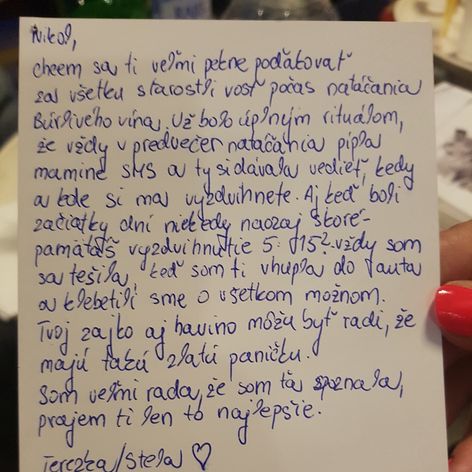 Nikol,
chcem sa ti veľmi pekne poďakovať
za všetku starostlivosť počas natáčania
Búrlivého vína. Už bolo úplným rituálom,
že vždy v predvečer natáčania pípla
mamine SMS a ty si dávala vedieť, kedy
a kde si ma vyzdvihnete. Aj keď boli
začiatky dní niekedy naozaj skoré-
pamätáš vyzdvihnutie 5:15? vždy som
sa tešila, keď som ti vhupla do auta
a klebetili sme o všetkom možnom.
Tvoj zajko aj havino môžu byť radi, že
majú takú zlatú paničku.
Som veľmi rada, že som ťa spoznala,
prajem ti len to najlepšie.
Terezka/Stela ♡